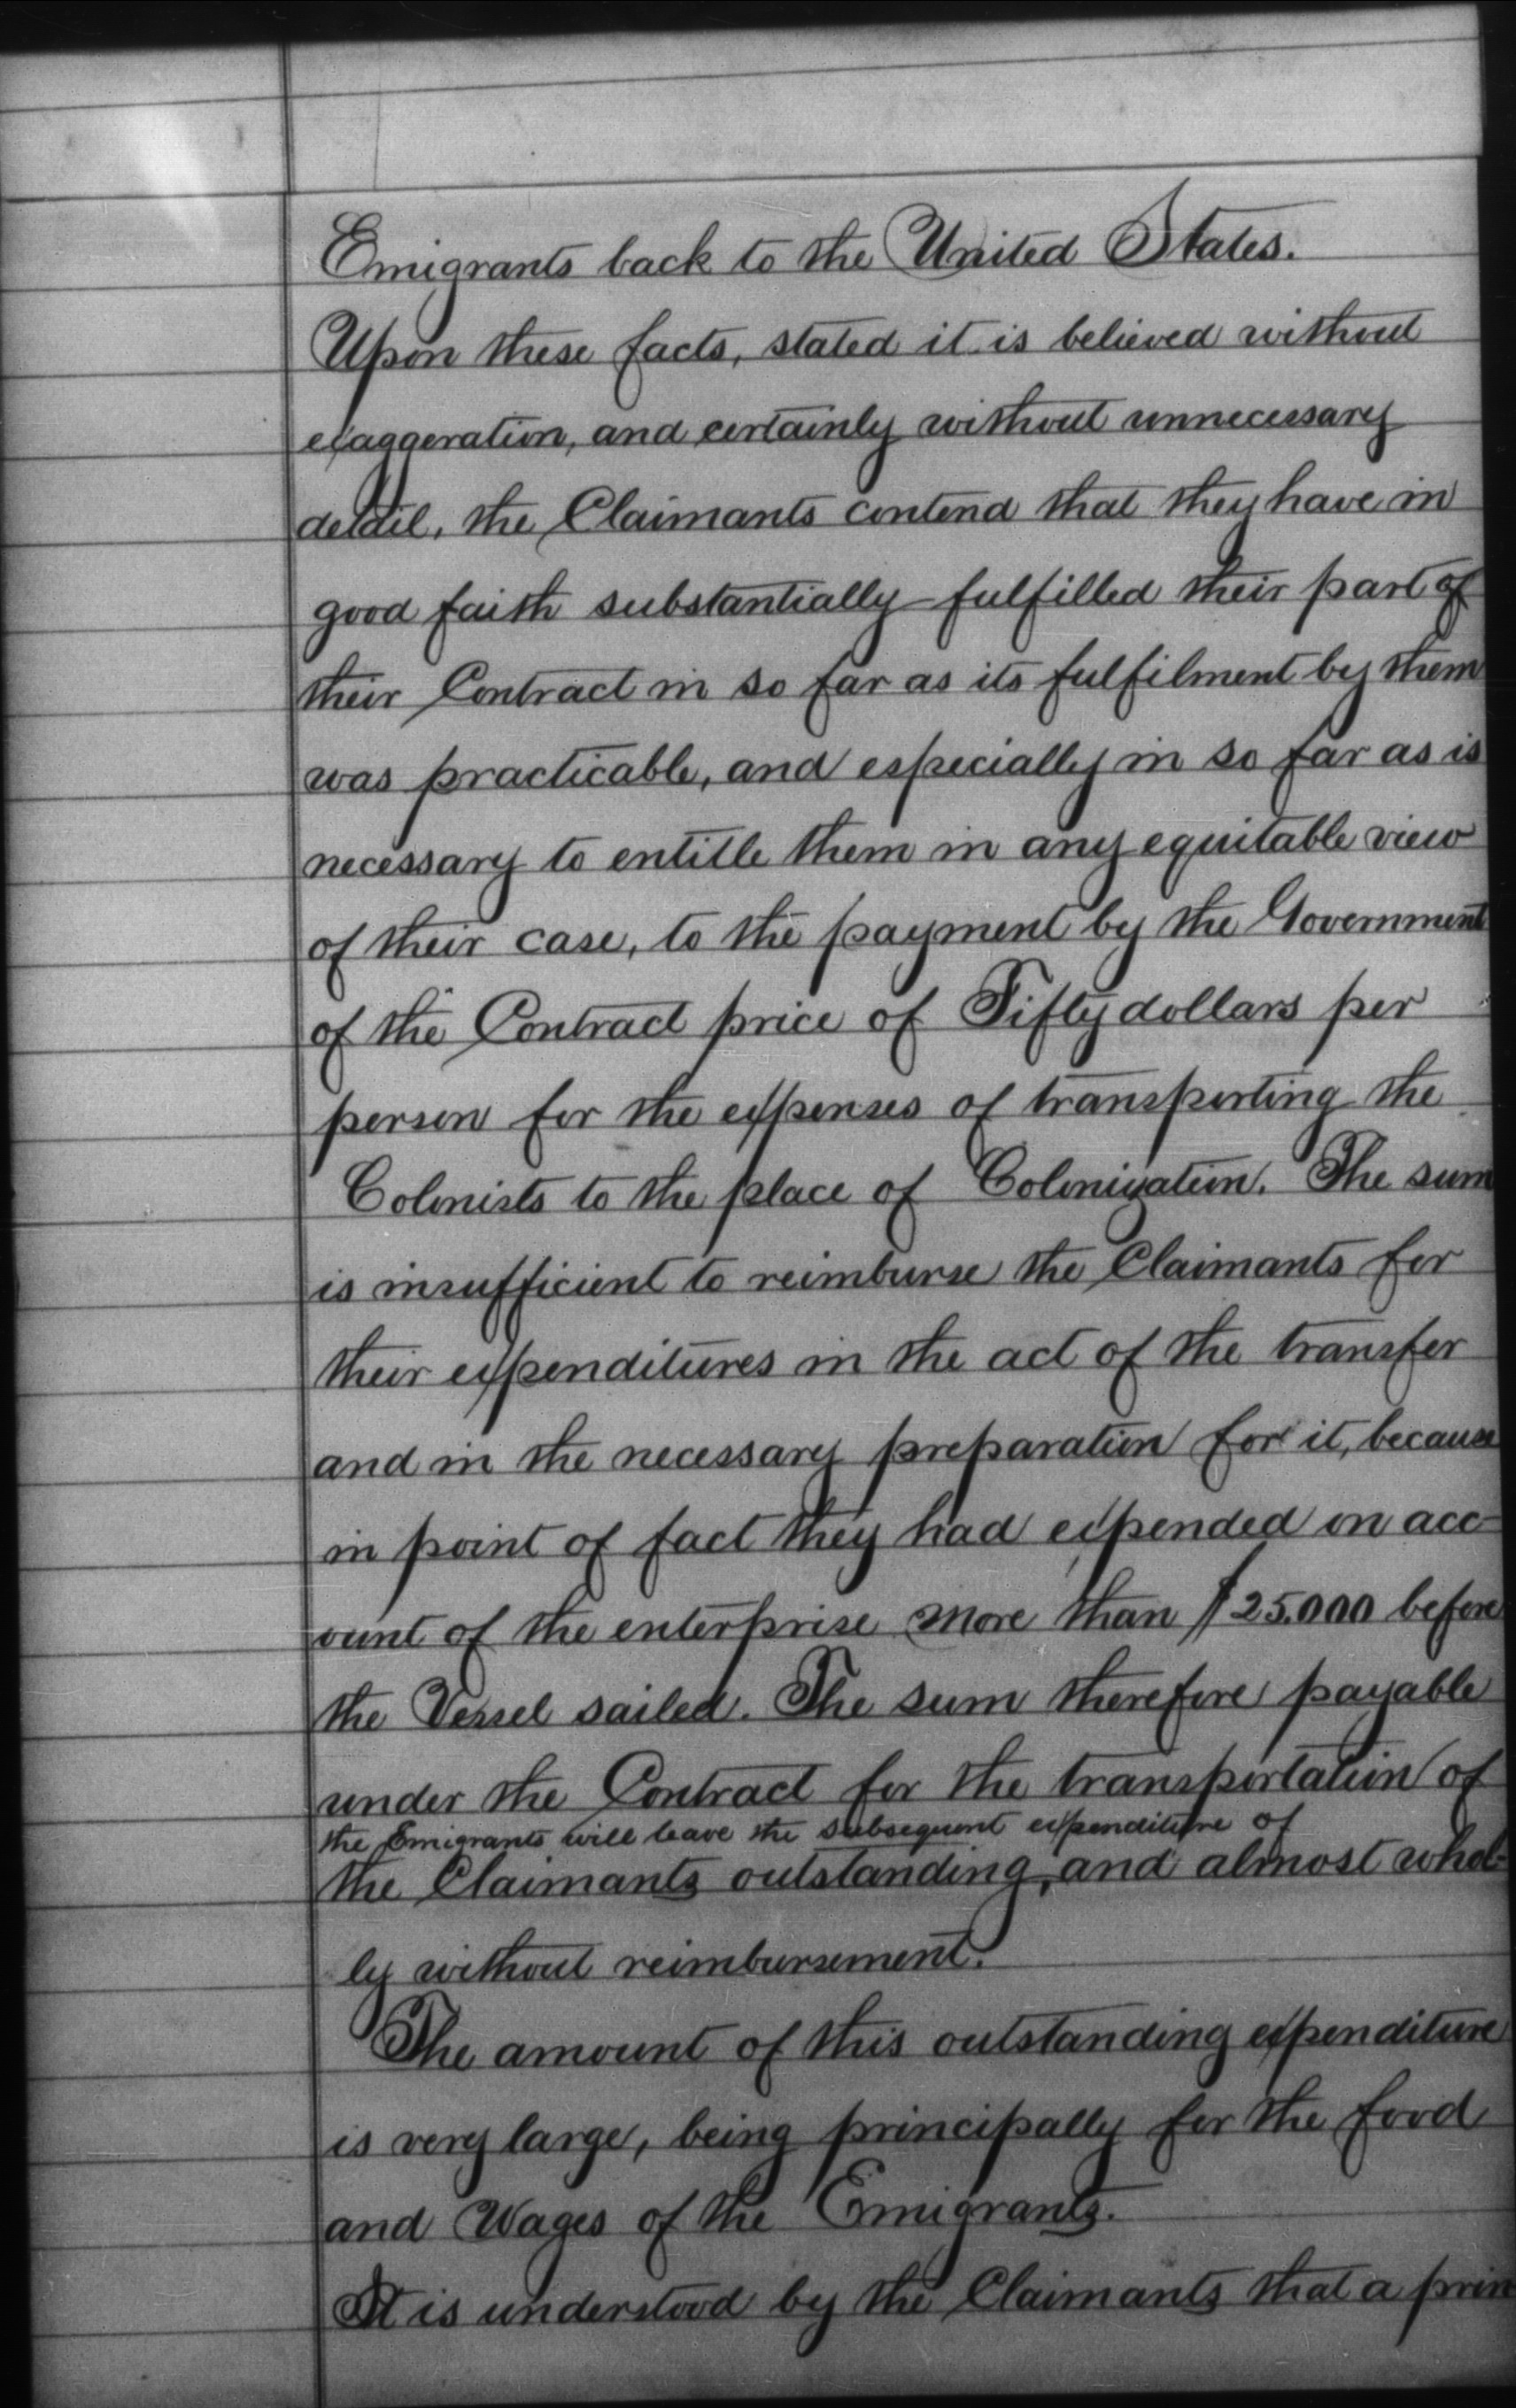 Emigrants back to the United States.
Upon these facts, stated it is believed without
exaggeration, and certainly without unnecessary
detail, the Claimants contend that they have in
good faith substantially fulfilled their part of
their Contract in so far as its fulfilment by them
was practicable, and especially in so far as is
necessary to entitle them in any equitable view
of their case, to the payment by the Government
of the Contract price of Fifty dollars per
person for the expenses of transporting the
Colonists to the place of Colonization. The sum
is insufficient to reimburse the Claimants for
their expenditures in the act of the transfer
and in the necessary preparation for it, because
in point of fact they had expended on acc-
ount of the enterprise more than $25.000 before
the Vessel sailed. The sum therefore payable
under the Contract for the transportation of
the Emigrants will leave the subsequent expenditure of
the Claimants outstanding, and almost whol-
ly without reimbursement.
The amount of this outstanding expenditure
is very large, being principally for the food
and Wages of the Emigrants.
It is understood by the Claimants that a prin